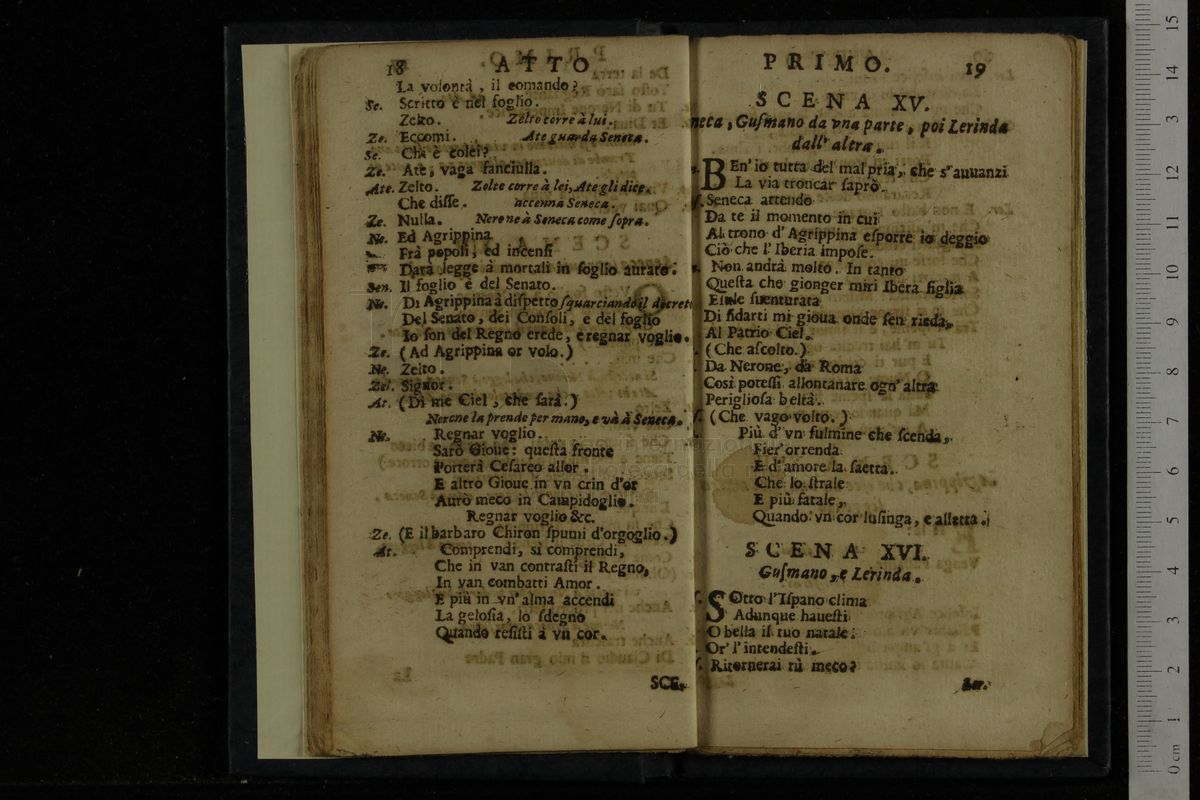 18 ATTO
La volontà, il comando?
Se. Scritto è nel foglio.
Zelto. Zelto corre à lui.
Ze. Eccomi. Ate guarda Seneca.
Se. Chi è colei?
Ze. Ate, vaga fanciulla.
Ate. Zelto. Zelto corre à lei, Ate gli dice.
Che disse. accenna Seneca.
Ze. Nulla. Nerone à Seneca come sopra.
Ne. Ed Agrippina
Frà popoli, ed incensi
Darà legge à mortali in soglio aurato.
Sen. Il foglio è del Senato.
Ne. Di Agrippina à dispetto squarciando il decreto
Del Senato, dei Consoli, e del foglio
Io son del Regno erede, e regnar voglio.
Ze. (Ad Agrippina or volo.)
Ne. Zelto.
Zel. Signor.
At. (Di me Ciel, che sarà.)
Nerone la prende per mano, e và à Seneca.
Ne. Regnar voglio.
Sarò Gioue: questa fronte
Porterà Cesareo allor.
E altro Gioue in vn crin d'or
Aurò meco in Campidoglio.
Regnar voglio &c.
Ze. (E il barbaro Chiron spumi d'orgoglio.)
At. Comprendi, sì comprendi,
Che in van contrasti il Regno,
In van combatti Amor.
E più in vn' alma accendi
La gelosia, lo sdegno
Quando resisti à vn cor.
SCE-
PRIMO. 19
SCENA XV.
neca, Gusmano da vna parte, poi Lerinda
dall' altra.
BEn' io tutta del mal pria, che s'auuanzi
La via troncar saprò.
Seneca attendo
Da te il momento in cui
Al trono d'Agrippina esporre io deggio
Ciò che l'Iberia impose.
Non andrà molto. In tanto
Questa che gionger miri Ibera figlia
Esule suenturata
Di fidarti mi gioua onde sen rieda,
Al Patrio Ciel.
(Che ascolto.)
Da Nerone, da Roma
Così potessi allontanare ogn' altra
Perigliosa beltà.
(Che vago volto.)
Più d'vn fulmine che scenda,
Fier' orrenda
E d'amore la saetta.
Che lo strale
E più fatale,
Quando vn cor lusinga, e alletta.
SCENA XVI.
Gusmano, e Lerinda.
SOtto l'Ispano clima
Adunque hauesti
O bella il tuo natale?
Or' l'intendesti.
Ritornerai tù meco?
Ler.